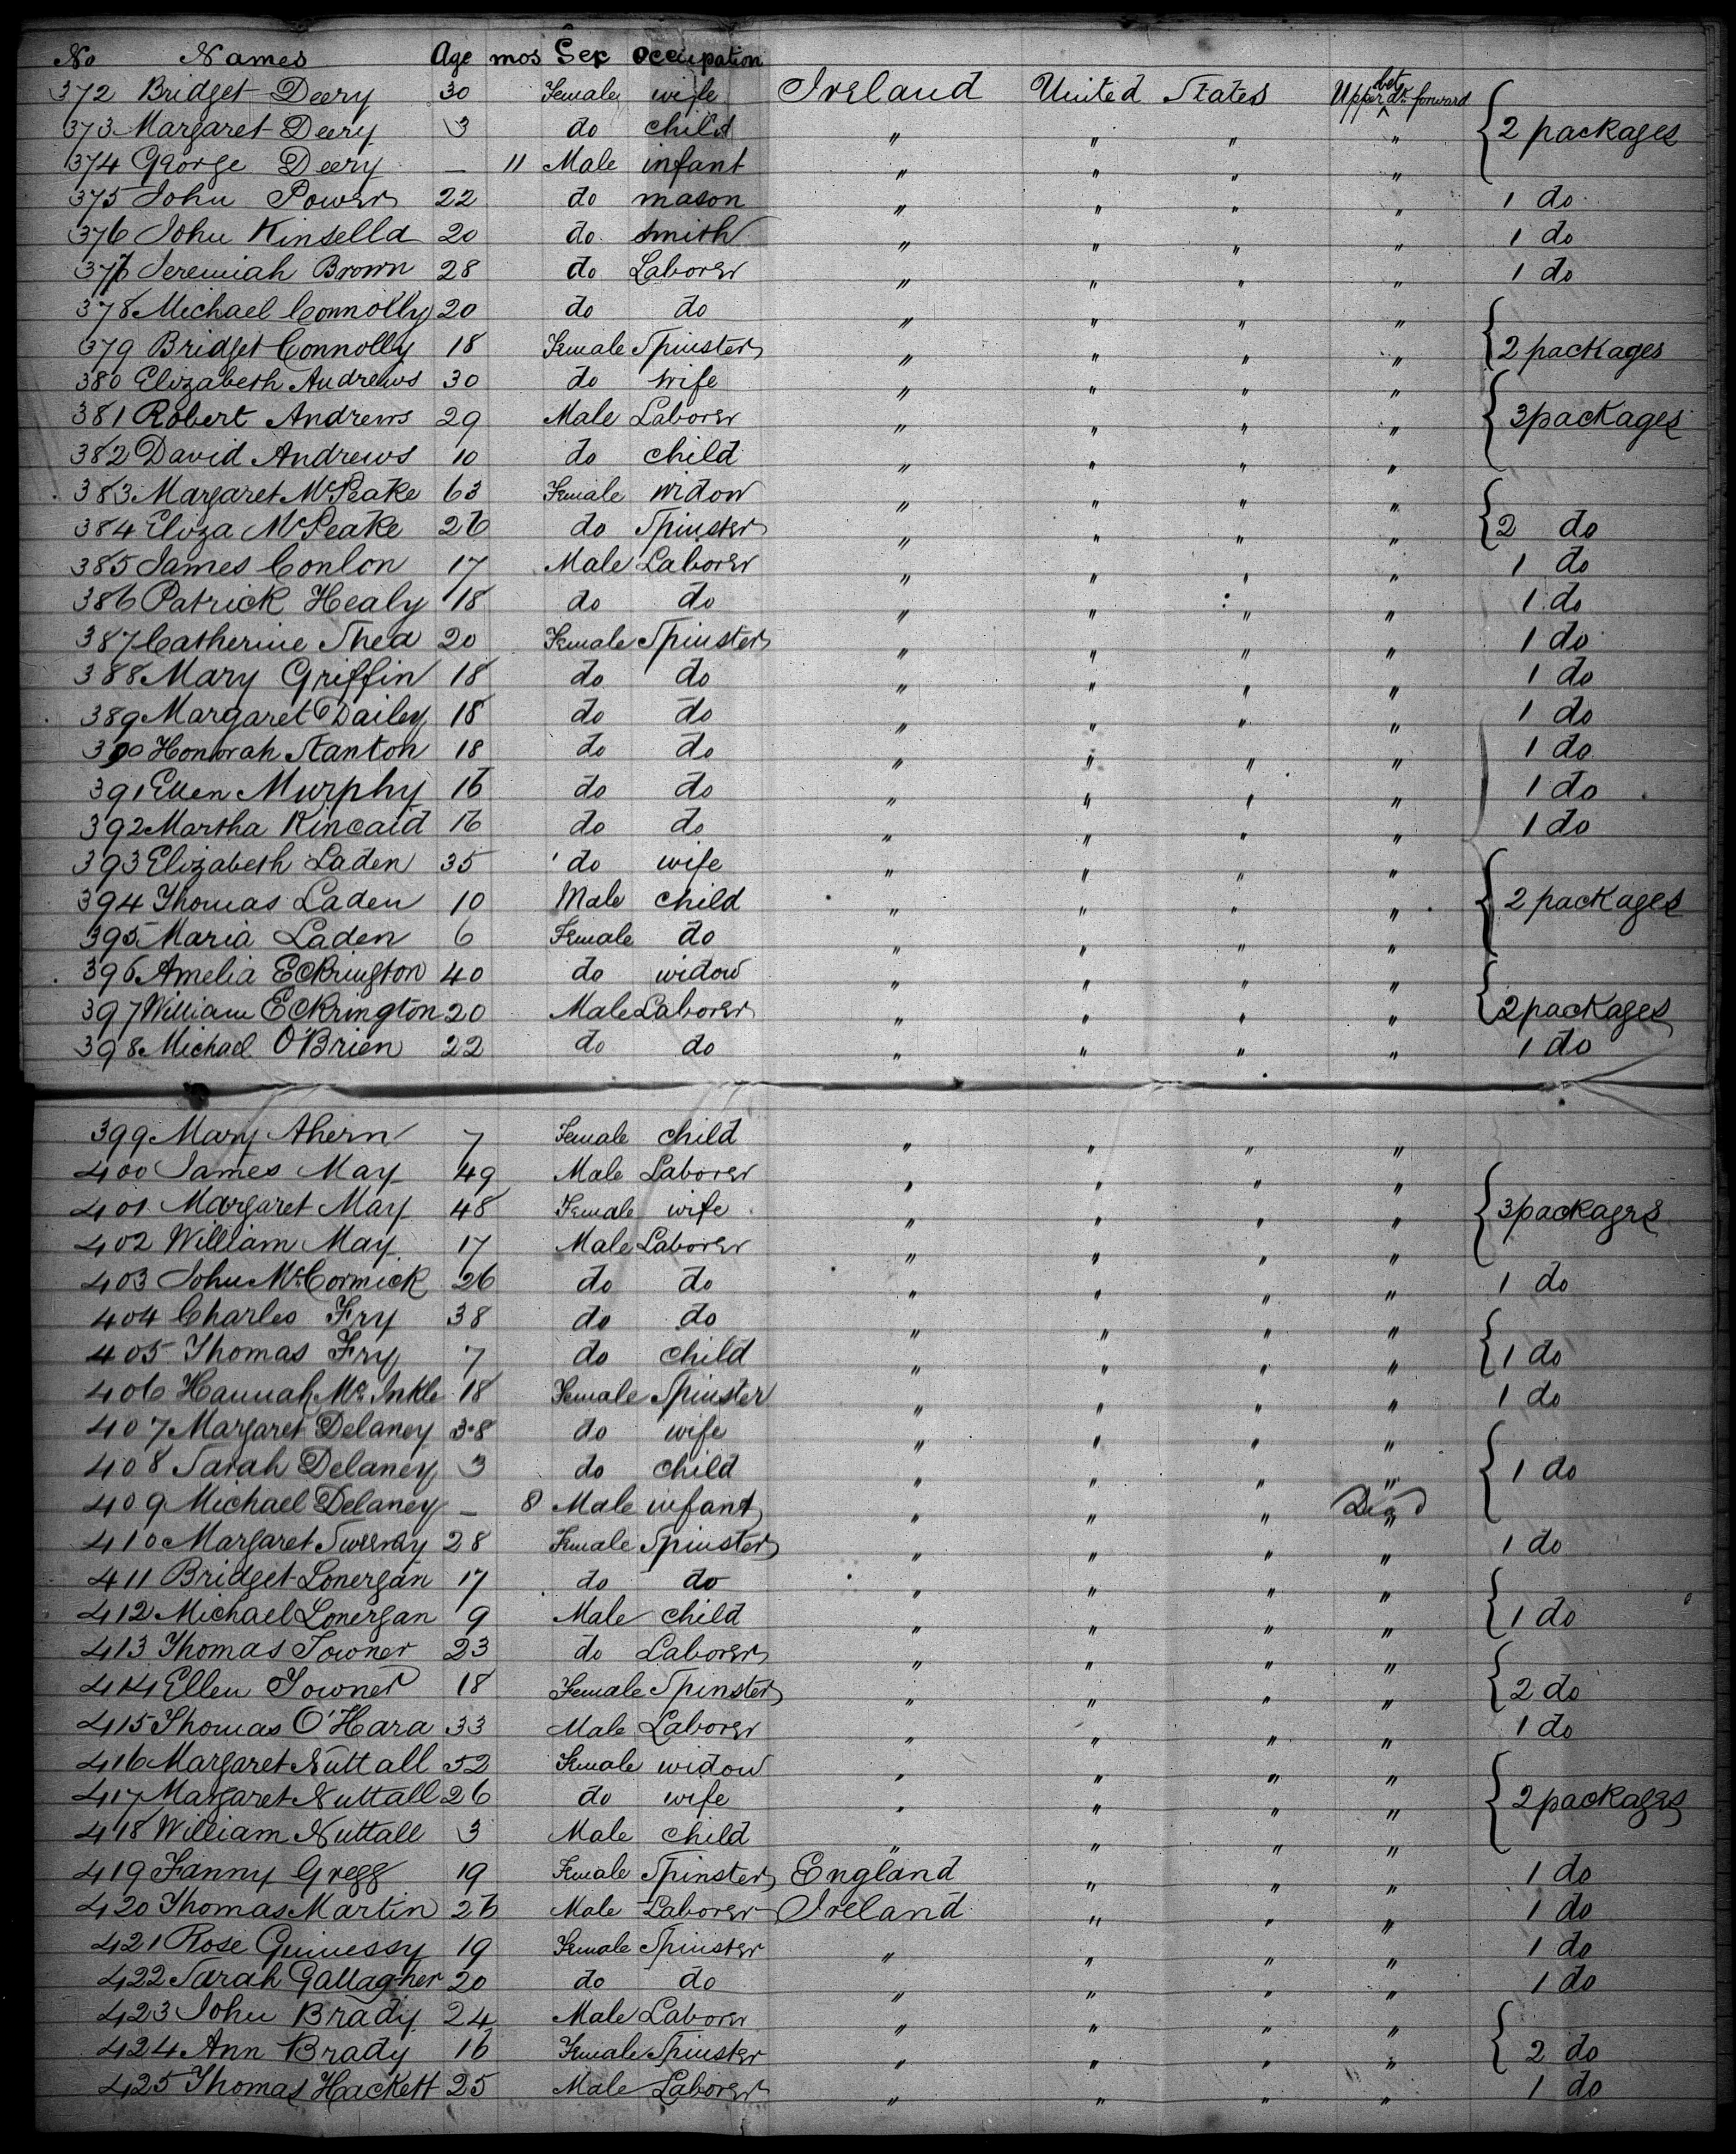 No Names Age mos Sex Occupation
372 Bridget Deery 30 Female wife Ireland United States Upper bet dk forward
373 Margaret Deery 3 do child " " " " 2 packages
374 George Deery — 11 Male infant " " " "
375 John Power 22 do mason " " " " 1 do
376 John Kinsella 20 do smith " " " " 1 do
377 Jeremiah Brown 28 do Laborer " " " " 1 do
378 Michael Connolly 20 do do " " " "
379 Bridget Connolly 18 Female Spinster " " " " 2 packages
380 Elizabeth Andrews 30 do wife " " " "
381 Robert Andrews 29 Male Laborer " " " " 3 packages
382 David Andrews 10 do child " " " "
383 Margaret McPeake 63 Female widow " " " "
384 Eliza McPeake 26 do Spinster " " " " 2 do
385 James Conlon 17 Male Laborer " " " " 1 do
386 Patrick Healy 18 do do " " " " 1 do
387 Catherine Shea 20 Female Spinster " " " " 1 do
388 Mary Griffin 18 do do " " " " 1 do
389 Margaret Dailey 18 do do " " " " 1 do
390 Honorah Stanton 18 do do " " " " 1 do
391 Ellen Murphy 16 do do " " " " 1 do
392 Martha Kincaid 16 do do " " " " 1 do
393 Elizabeth Laden 35 do wife " " " "
394 Thomas Laden 10 Male child " " " " 2 packages
395 Maria Laden 6 Female do " " " "
396 Amelia Eckrington 40 do widow " " " "
397 William Eckrington 20 Male Laborer " " " " 2 packages
398 Michael O'Brien 22 do do " " " " 1 do
399 Mary Ahern 7 Female child " " " "
400 James May 49 Male Laborer " " " "
401 Margaret May 48 Female wife " " " " 3 packages
402 William May 17 Male Laborer " " " "
403 John McCormick 26 do do " " " " 1 do
404 Charles Fry 38 do do " " " "
405 Thomas Fry 7 do child " " " " 1 do
406 Hannah McInkle 18 Female Spinster " " " " 1 do
407 Margaret Delaney 38 do wife " " " "
408 Sarah Delaney 3 do child " " " " 1 do
409 Michael Delaney — 8 Male infant " " " Died "
410 Margaret Sweeney 28 Female Spinster " " " " 1 do
411 Bridget Lonergan 17 do do " " " "
412 Michael Lonergan 9 Male child " " " " 1 do
413 Thomas Towner 23 do Laborer " " " "
414 Ellen Towner 18 Female Spinster " " " " 2 do
415 Thomas O'Hara 33 Male Laborer " " " " 1 do
416 Margaret Nuttall 52 Female widow " " " "
417 Margaret Nuttall 26 do wife " " " " 2 packages
418 William Nuttall 3 Male child " " " "
419 Fanny Gregg 19 Female Spinster England " " " 1 do
420 Thomas Martin 26 Male Laborer Ireland " " " 1 do
421 Rose Guinessy 19 Female Spinster " " " " 1 do
422 Sarah Gallagher 20 do do " " " " 1 do
423 John Brady 24 Male Laborer " " " "
424 Ann Brady 16 Female Spinster " " " " 2 do
425 Thomas Hackett 25 Male Laborer " " " " 1 do